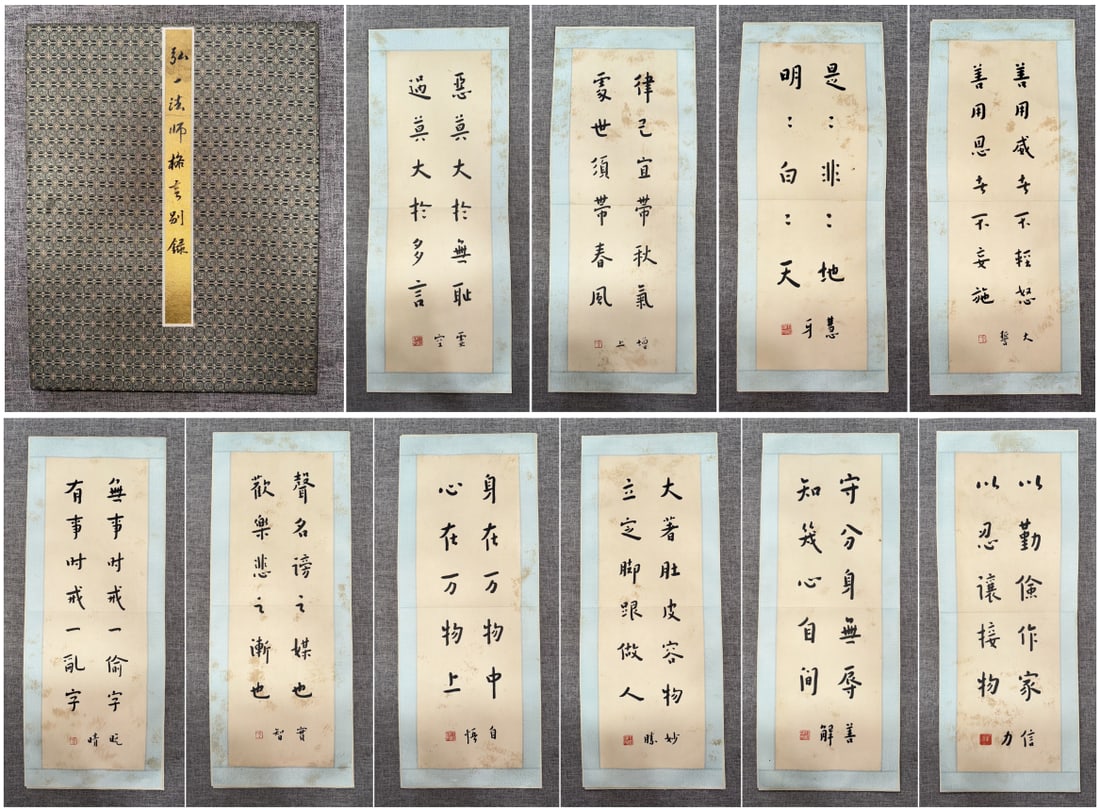 弘一法師格言别録
惡莫大於無恥
過莫大於多言
雲空
律己宜帶秋氣
處世須帶春風
增上
是：非：地
明：白：天
慧牙
善用威者不輕怒
善用恩者不妄施
大誓
無事时戒一偷字
有事时戒一亂字
晚晴
聲名謗之媒也
歡樂悲之漸也
實智
身在万物中
心在万物上
自悟
大著肚皮容物
立定脚跟做人
妙勝
守分身無辱
知幾心自间
善解
以勤儉作家
以忍讓接物
信力